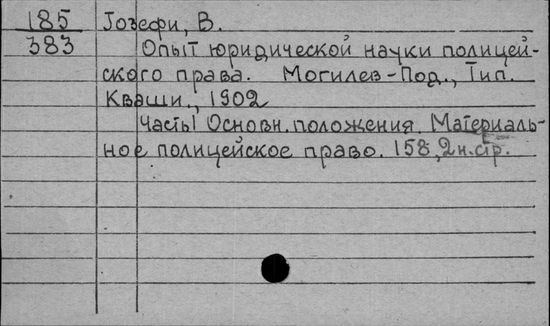 185 Гозефи, В.
383 Опыт юридической науки полицей-
ского права. Могилев-Под., Тип.
Кваши, 1902
Часть I Основн. положения. Материаль-
ное полицейское право. 158, 2 н. стр.